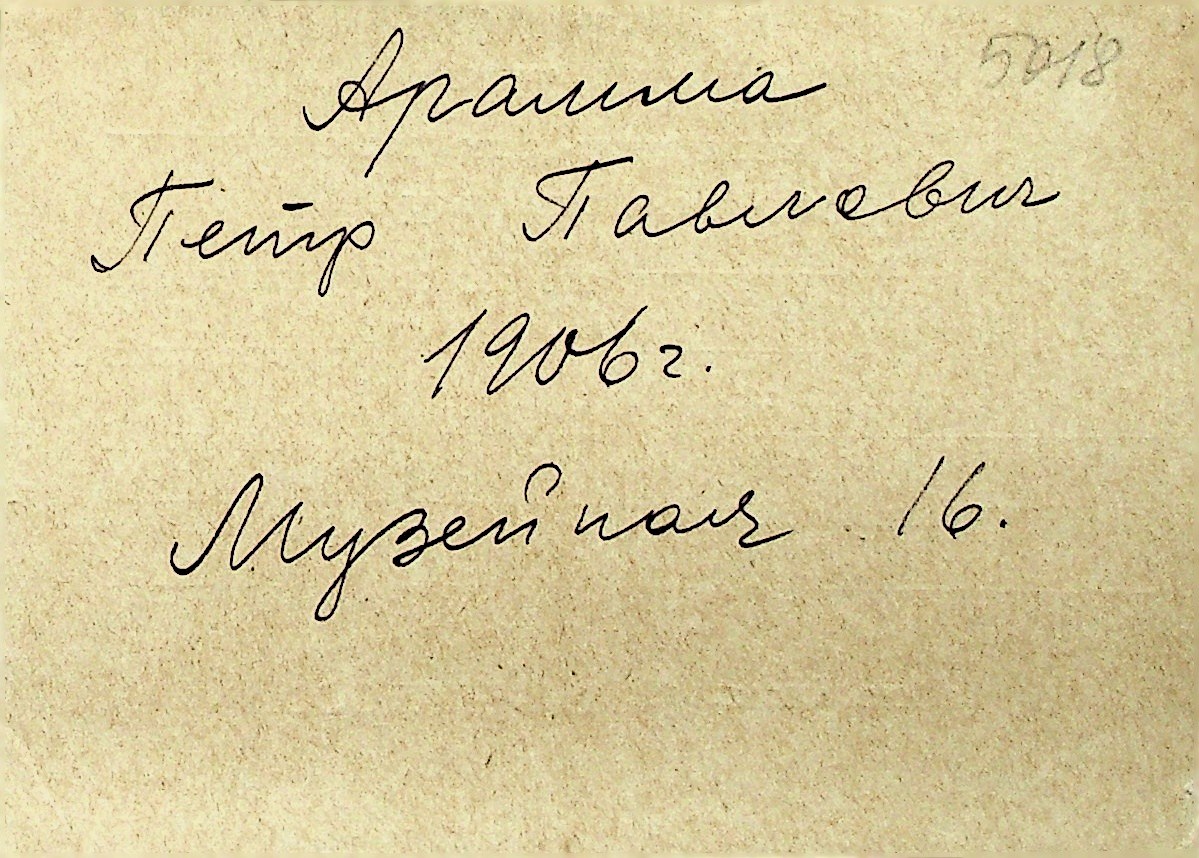 5018
Петр Павлович
1906 г.
Музейная 16.